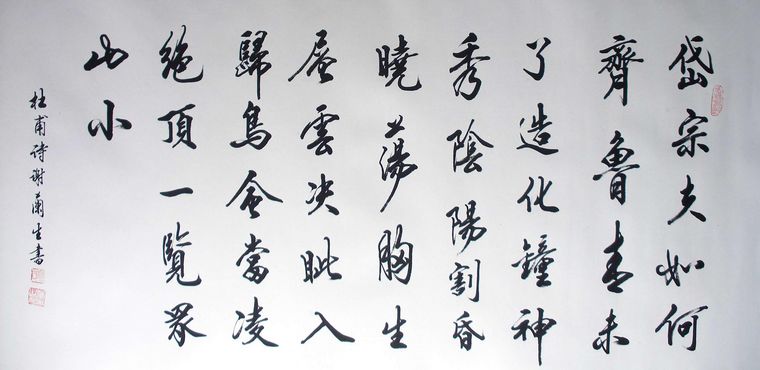 岱宗夫如何
齊魯青未
了造化鐘神
秀陰陽割昏
曉蕩胸生
層雲决眦入
歸鳥會當凌
絶頂一覽眾
山小
杜甫詩謝蘭生書